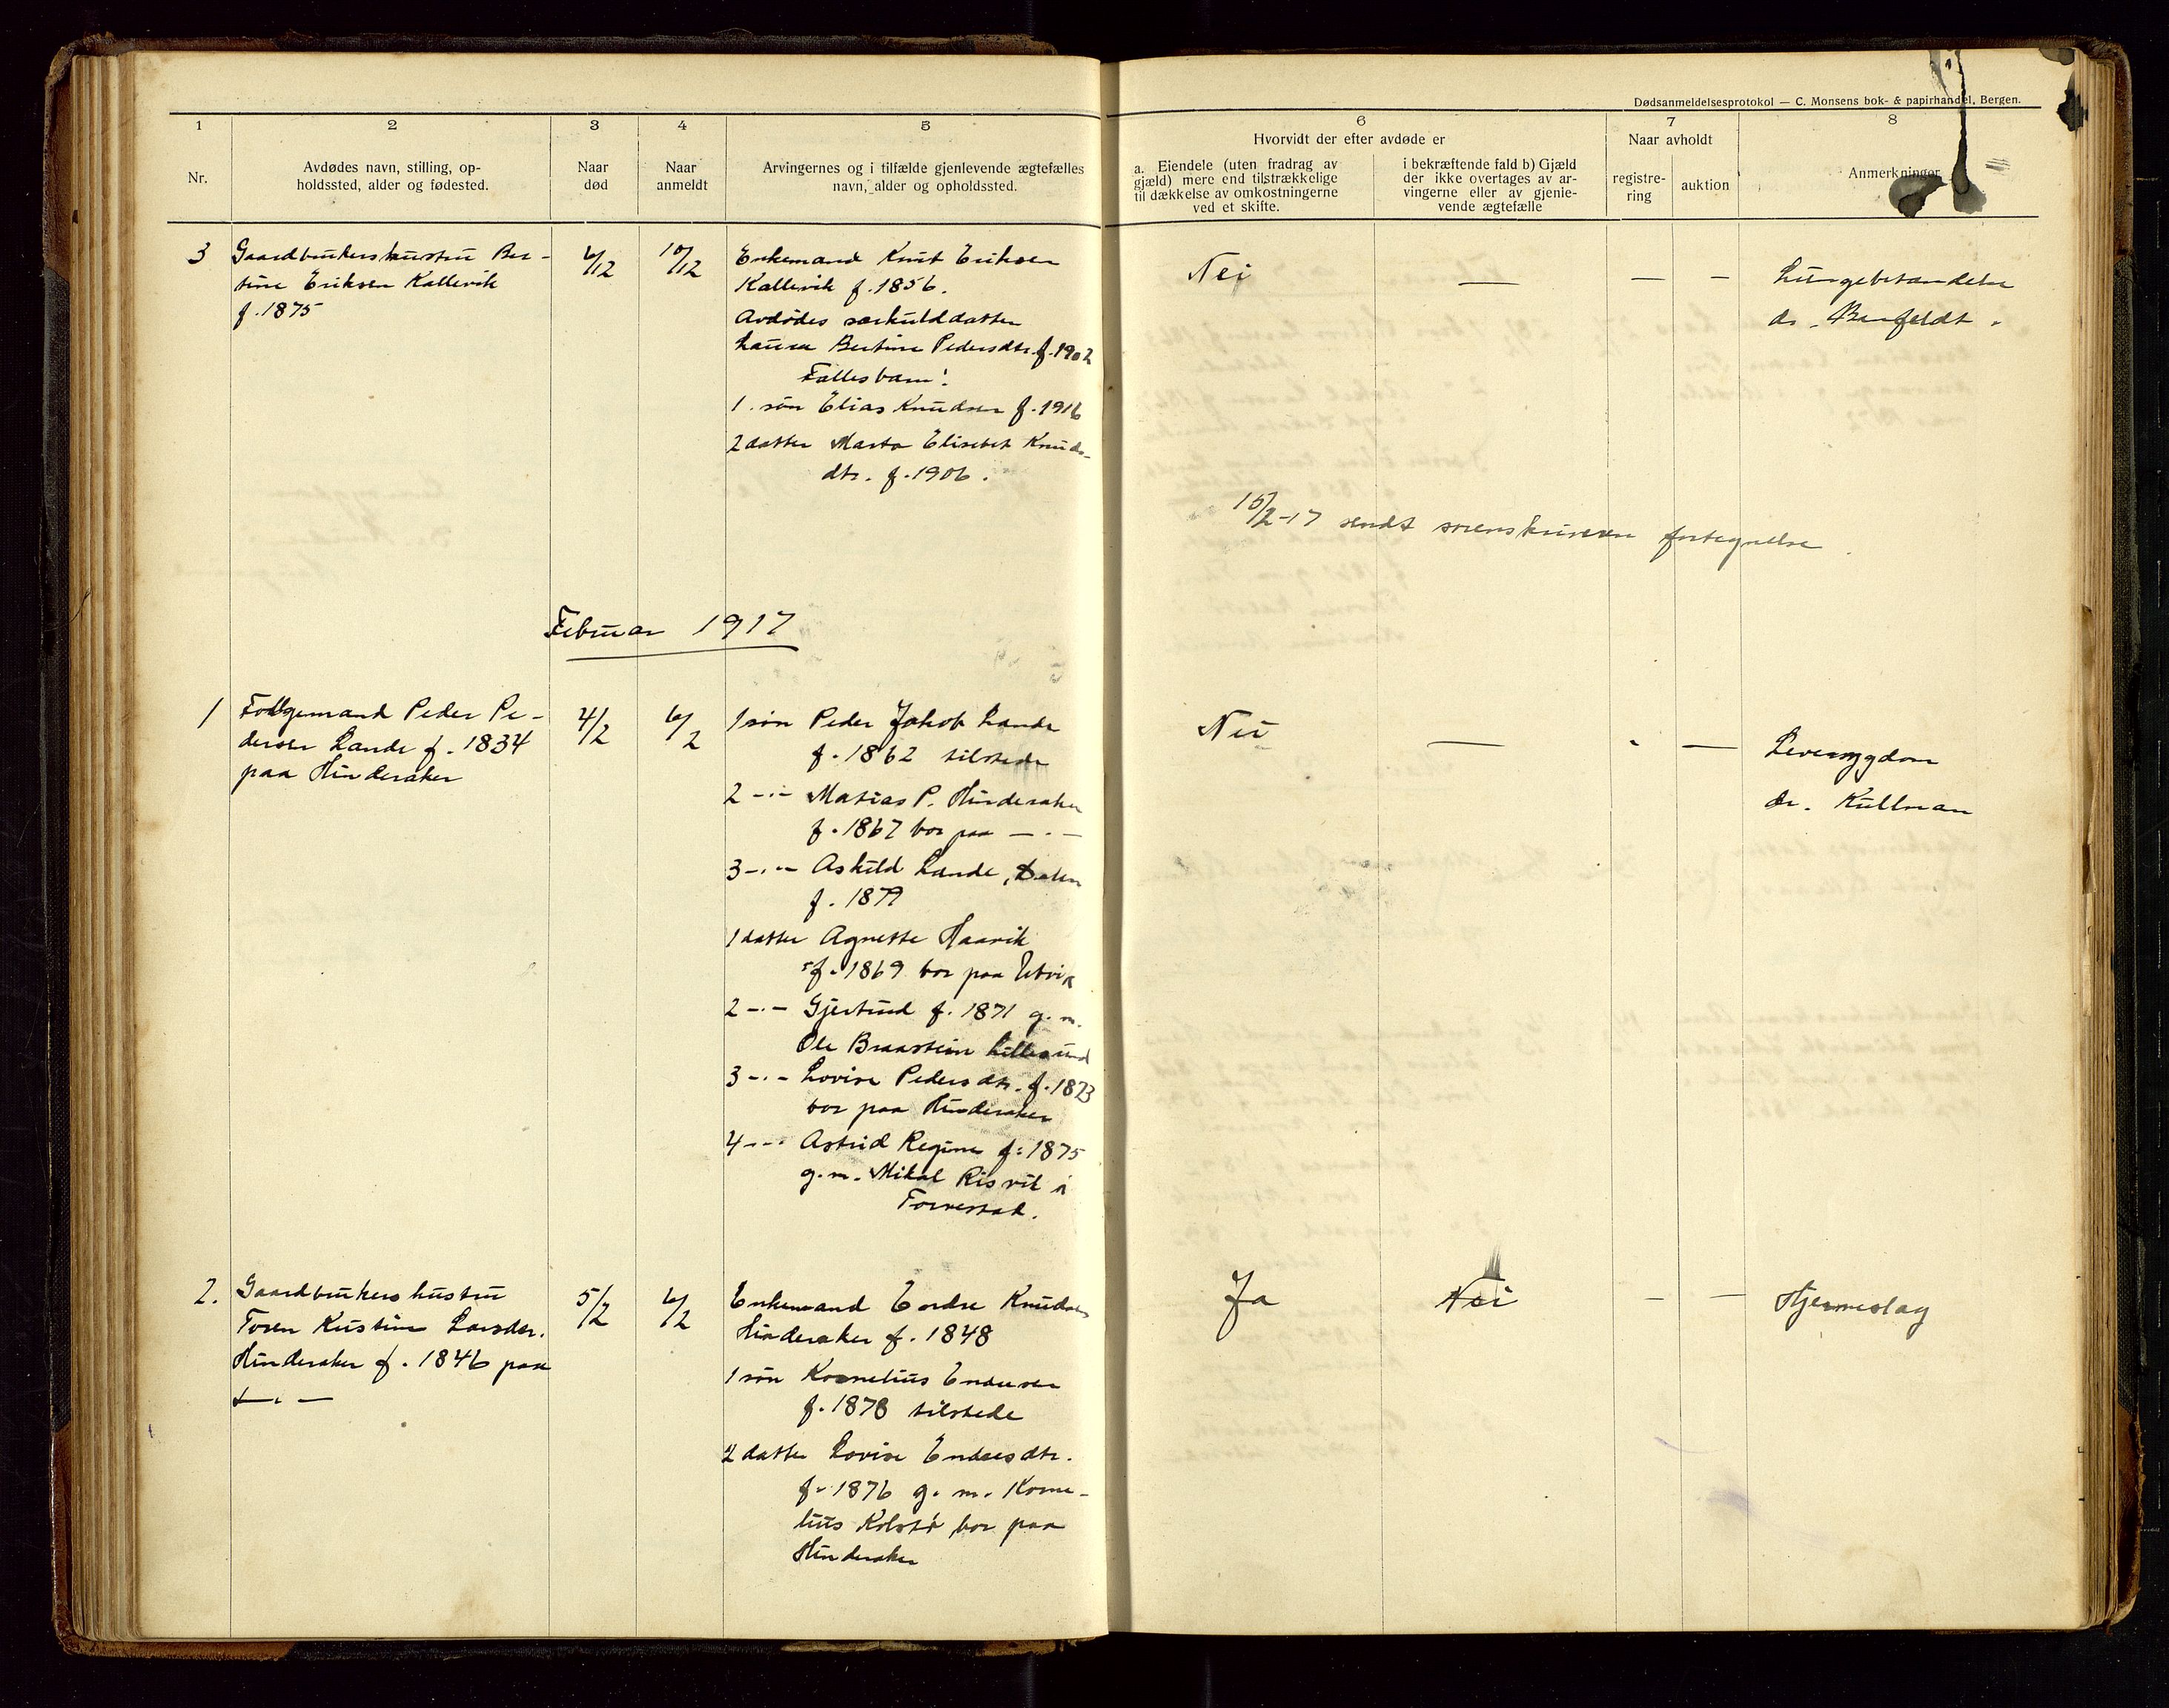 Dødsanmeldelsesprotokol — C. Monsens bok- & papirhandel, Bergen.
1
2
3
4
5
6
7
8
Nr.
Avdødes navn, stilling, op-
holdssted, alder og fødested.
Naar
død
Naar
anmeldt
Arvingernes og i tilfælde gjenlevende ægtefælles
navn, alder og opholdssted.
Hvorvidt der efter avdøde er
a. Eiendele (uten fradrag av
gjæld) mere end tilstrækkelige
til dækkelse av omkostningerne
ved et skifte.
i bekræftende fald b) Gjæld
der ikke overtages av ar-
vingerne eller av gjenle-
vende ægtefælle
Naar avholdt
registre-
ring
auktion
Anmerkninger
3
Gaardbrukershustru Ber-
tine Eriksen Kallevik
f. 1875
6/12
10/12
Enkemand Knut Eriksen
Kallevik f. 1856.
Avdødes særkulddatter
Laura Bertine Pedersdtr. f. 1902
Fællesbarn:
1. søn Elias Knudsen f. 1916
2 datter Marta Elisebet Knuds-
dtr. f. 1906.
Nei
—
— —
Lungebetændelse
dr.
15/2-17 sendt sorenskriveren fortegnelse.
Februar 1917
1
Folgemand Peder Pe-
dersen Lande f. 1834
paa Hinderaker
4/2
6/2
1 søn Peder Jakob Lande
f. 1862 tilstede
2 -·- Matias P. Hinderaker
f. 1867 bor paa —·—
3 -·- Askild Lande,
f. 1879
1 datter Agnette Haavik
f. 1869 bor paa Utvik
2 -·- Gjertrud f. 1871 g. m.
Ole Braastein Lillesund
3 -·- Lovise Pedersdtr. f. 1873
bor paa Hinderaker
4 -·- Astrid Regine f. 1875
g. m. Mikal Risvik i
Torvestad.
Nei
—
- —
Leversygdom
dr. Kullman
2.
Gaardbrukershustru
Toren Kristine Larsdtr.
Hinderaker f. 1846 paa
—·—
5/2
6/2
Enkemand Endre Knudsen
Hinderaker f. 1848
1 søn Kornelius Endresen
f. 1878 tilstede
2 datter Lovise Endresdtr.
f. 1876 g. m. Korne-
lius Kolstø bor paa
Hinderaker
Ja
Nei
— —
Hjerneslag